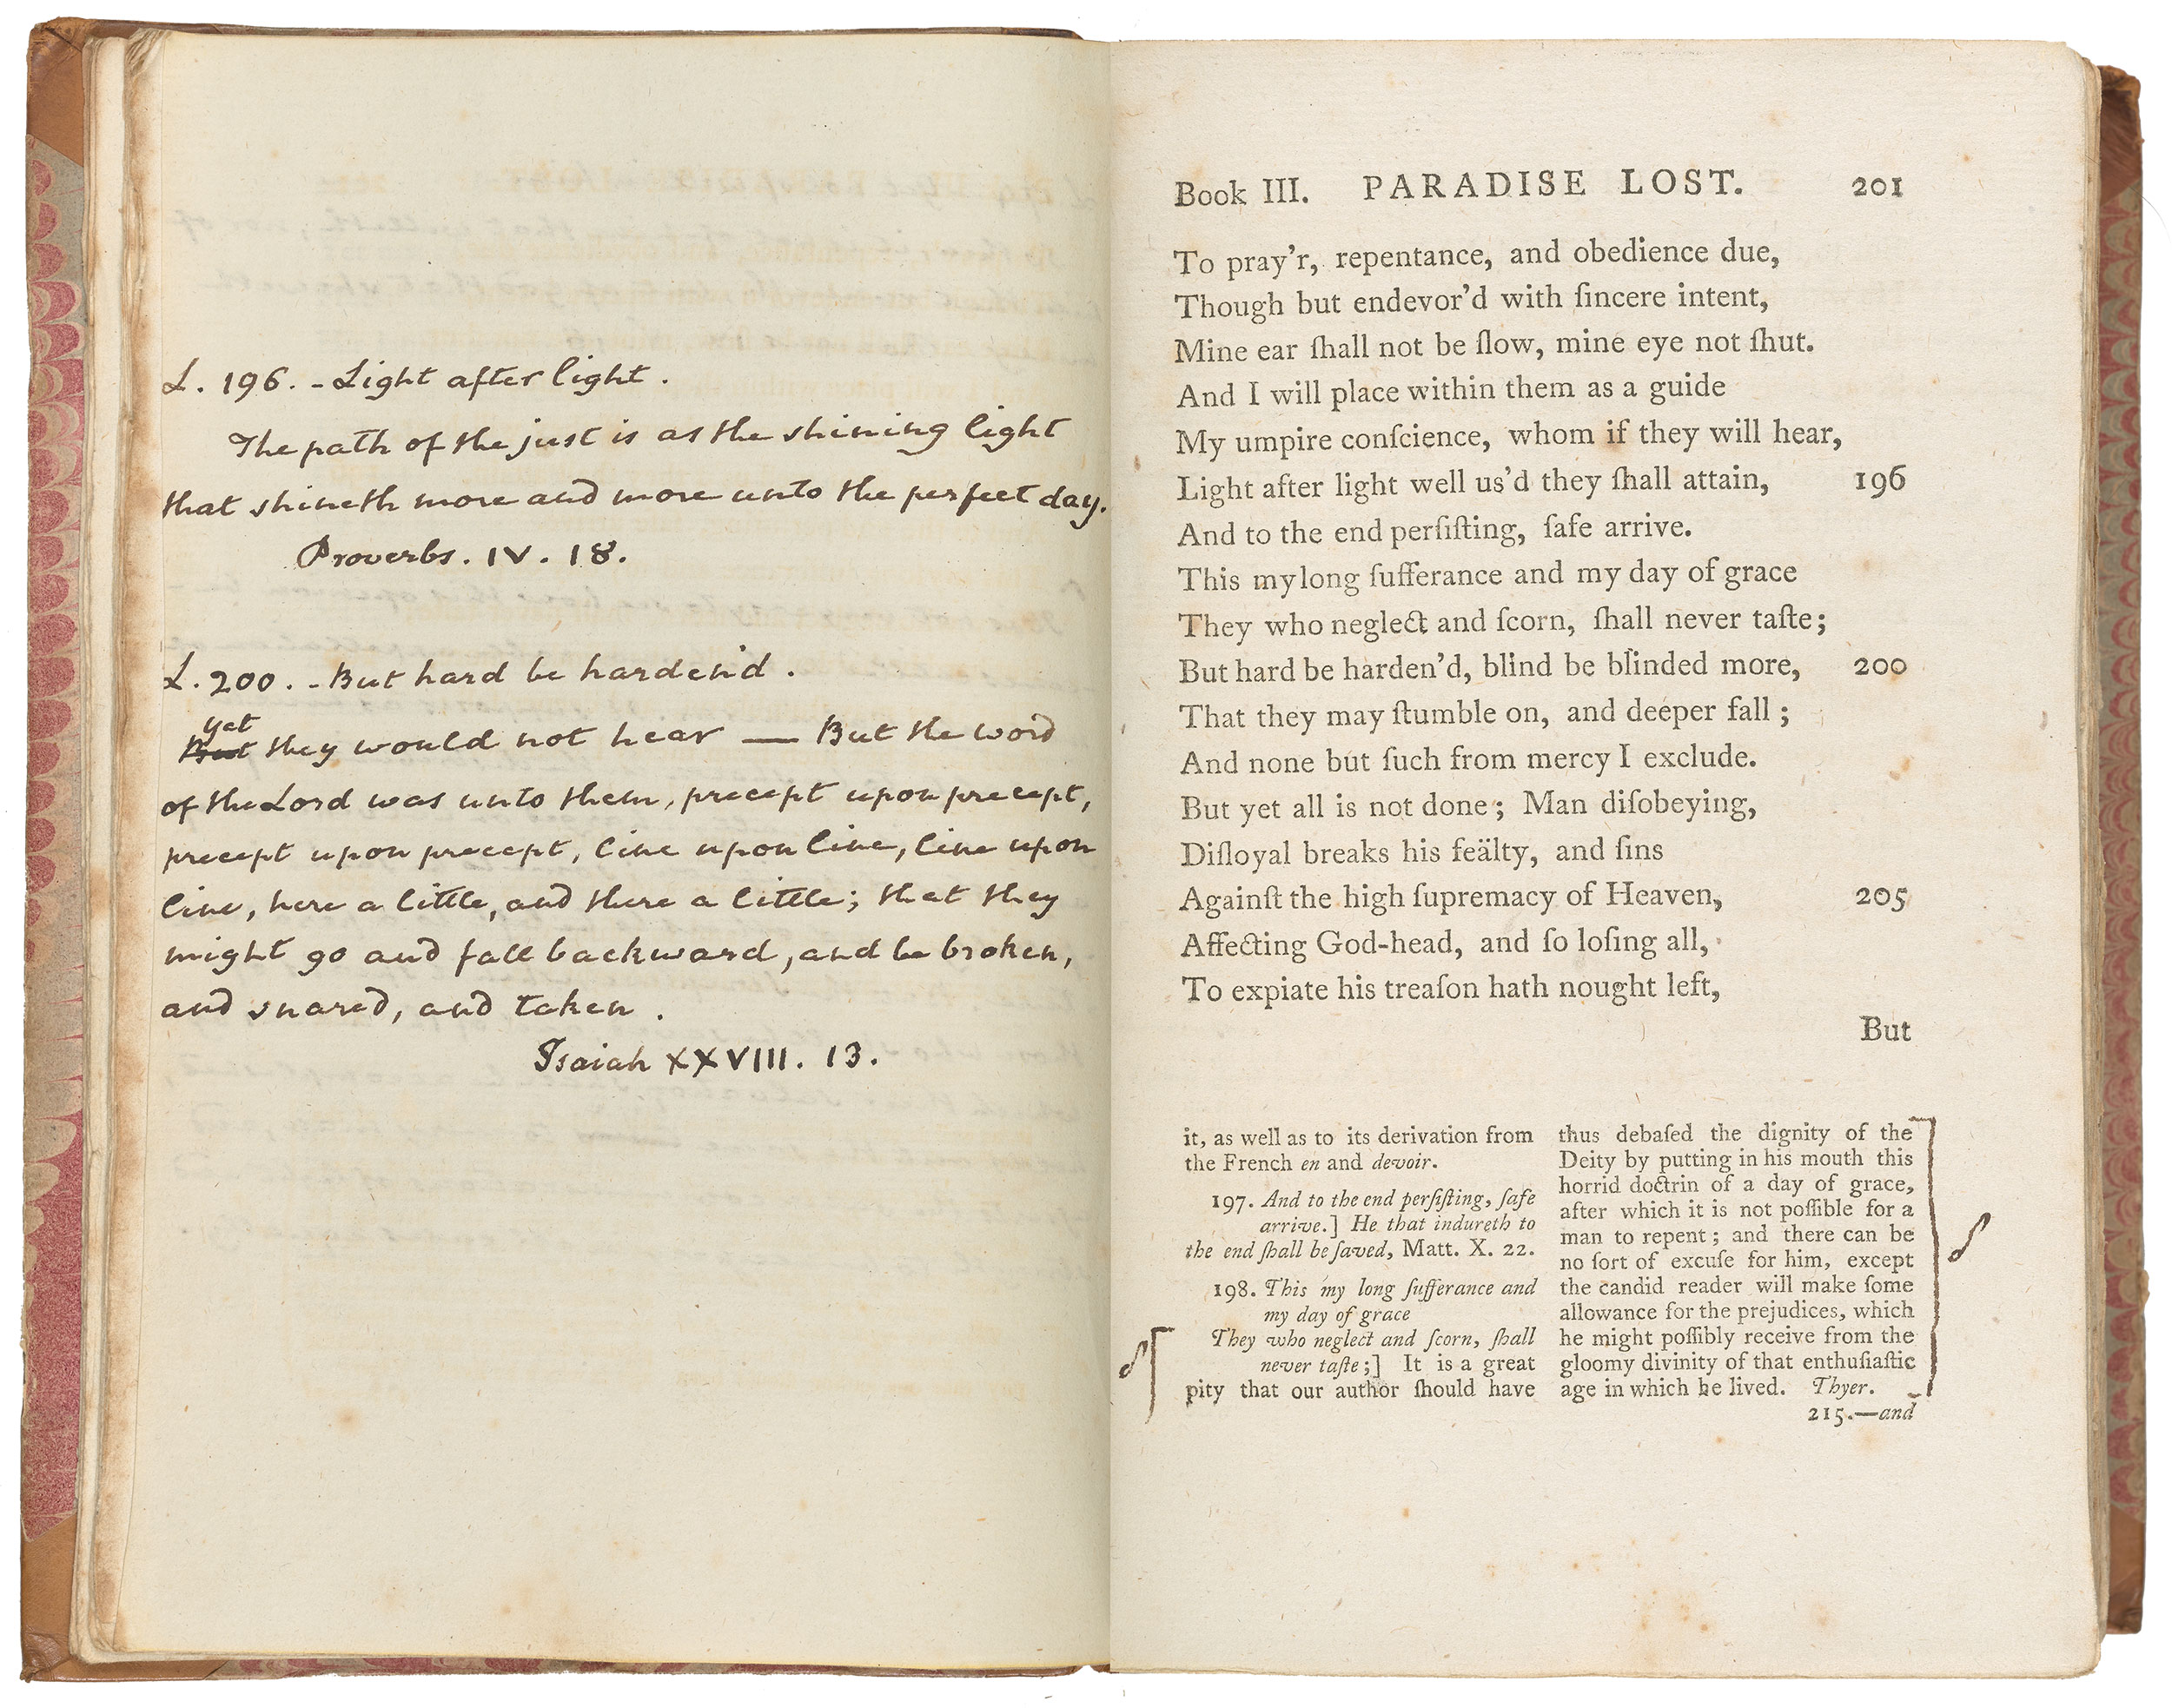 L. 196. - Light after light.
The path of the just is as the shining light
that shineth more and more unto the perfect day.
Proverbs. IV. 18.
L. 200. - But hard be harden'd.
yet
But they would not hear — But the word
of the Lord was unto them, precept upon precept,
precept upon precept, line upon line, line upon
line, here a little, and there a little; that they
might go and fall backward, and be broken,
and snared, and taken.
Isaiah XXVIII. 13.
Book III. PARADISE LOST. 201
To pray'r, repentance, and obedience due,
Though but endevor'd with ſincere intent,
Mine ear ſhall not be ſlow, mine eye not ſhut.
And I will place within them as a guide
My umpire conſcience, whom if they will hear,
Light after light well us'd they ſhall attain, 196
And to the end perſiſting, ſafe arrive.
This my long ſufferance and my day of grace
They who neglect and ſcorn, ſhall never taſte;
But hard be harden'd, blind be blinded more, 200
That they may ſtumble on, and deeper fall;
And none but ſuch from mercy I exclude.
But yet all is not done; Man diſobeying,
Diſloyal breaks his feälty, and ſins
Againſt the high ſupremacy of Heaven, 205
Affecting God-head, and ſo loſing all,
To expiate his treaſon hath nought left,
But
it, as well as to its derivation from
the French en and devoir.
197. And to the end perſiſting, ſafe
arrive.] He that indureth to
the end ſhall be ſaved, Matt. X. 22.
198. This my long ſufferance and
my day of grace
They who neglect and ſcorn, ſhall
never taſte;] It is a great
pity that our author ſhould have
thus debaſed the dignity of the
Deity by putting in his mouth this
horrid doctrin of a day of grace,
after which it is not poſſible for a
man to repent; and there can be
no ſort of excuſe for him, except
the candid reader will make ſome
allowance for the prejudices, which
he might poſſibly receive from the
gloomy divinity of that enthuſiaſtic
age in which he lived. Thyer.
215.—and